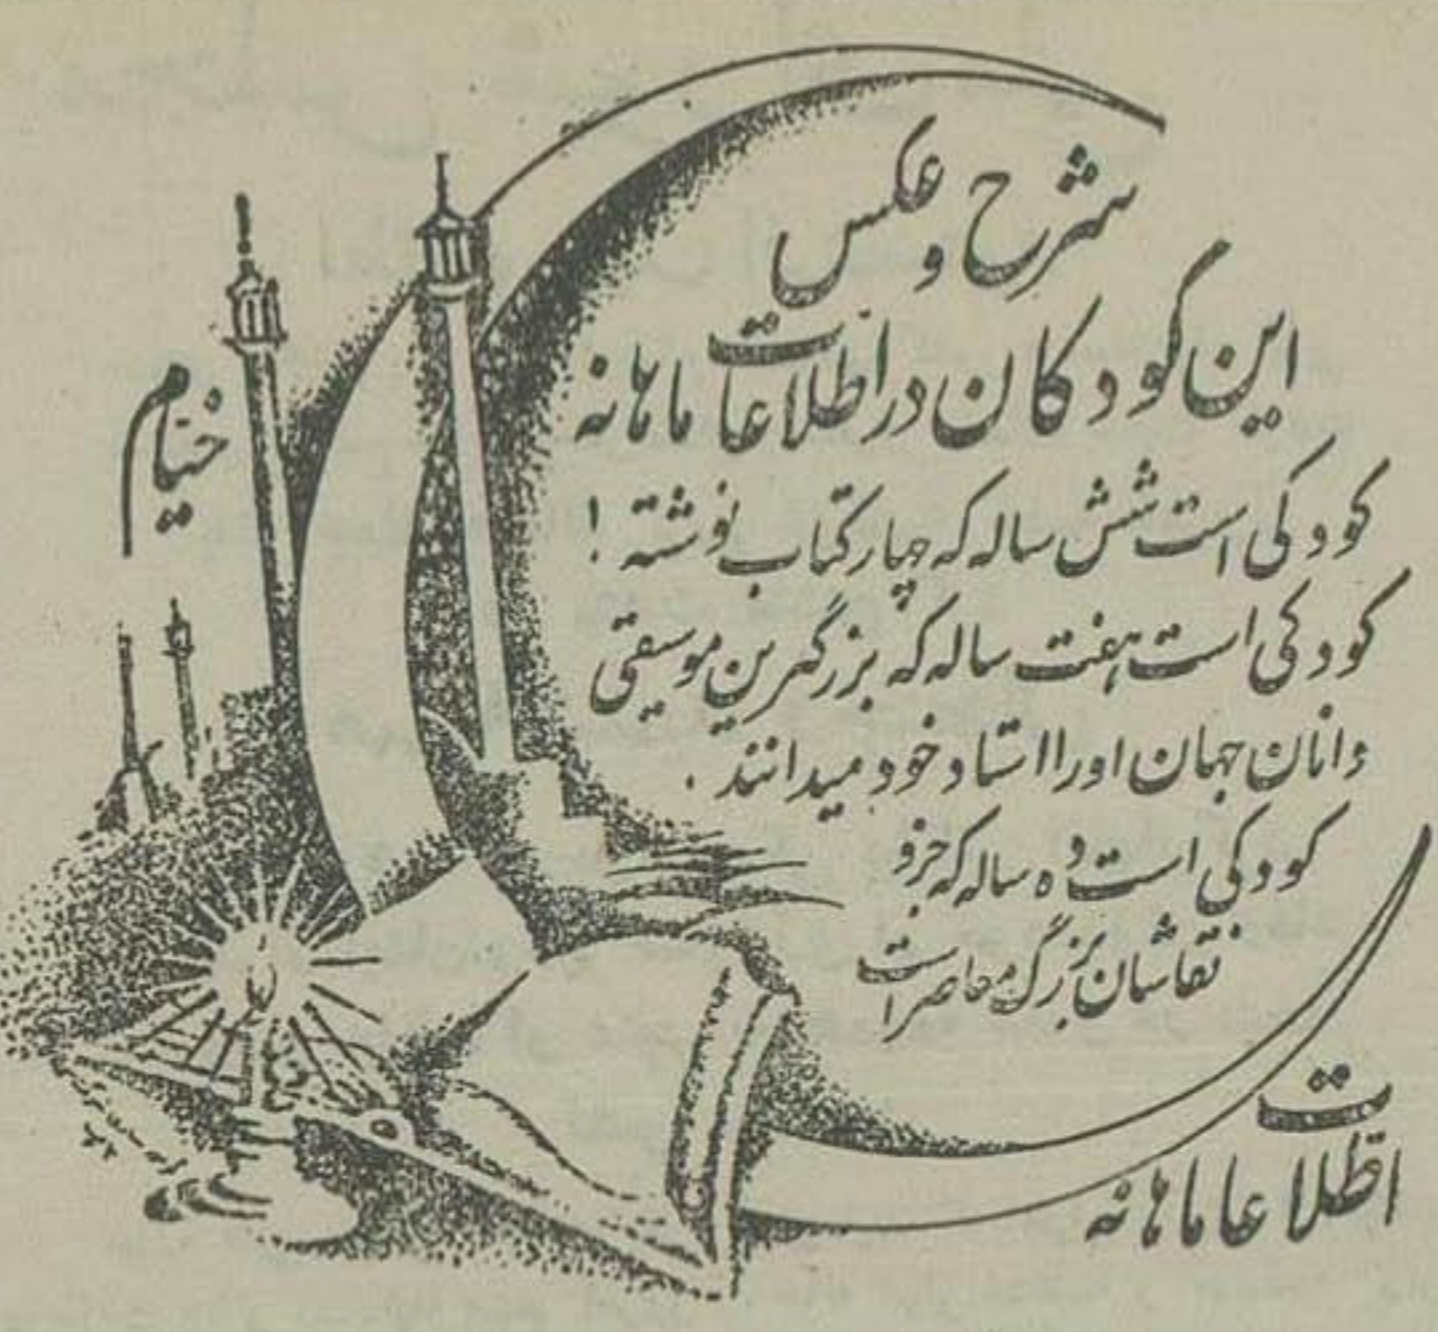 شرح و عکس
این کودکان در اطلاعات ماهانه
کودکی است شش ساله که چهار کتاب نوشته !
کودکی است هفت ساله که بزرگترین موسیقی
دانان جهان او را استاد خود میدانند .
کودکی است ده ساله که جزو
نقاشان بزرگ معاصر است
اطلاعات ماهانه
خیام